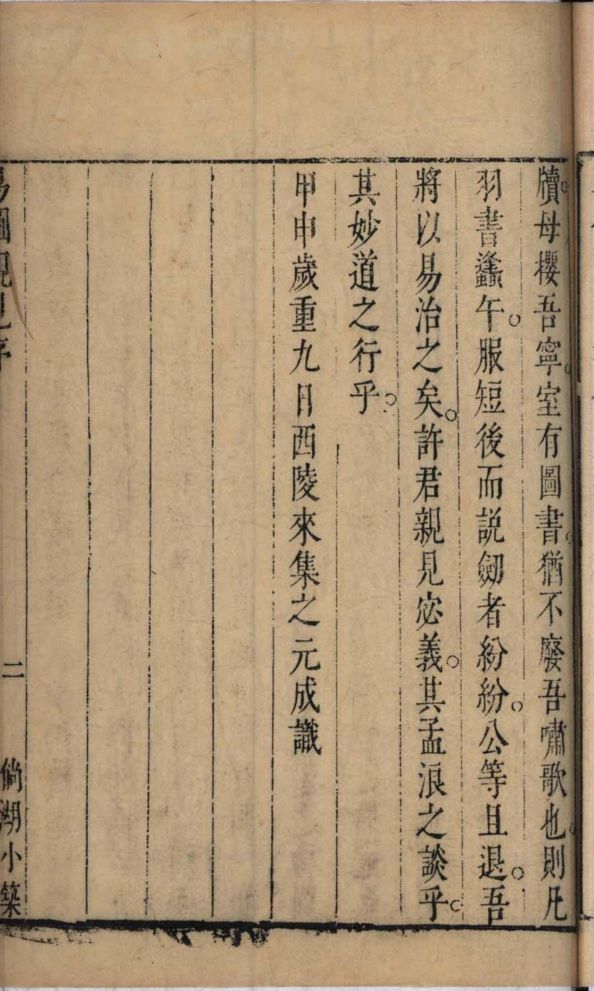 牘母櫻吾寧室有圖書猶不廢吾嘯歌也則凡
羽書蠭午。服短後而説劒者紛紛。公等且退。吾
將以易治之矣。許君親見宓義。其孟浪之談乎。
其妙道之行乎。
甲申歲重九日西陵來集之元成識
易圖親見序
二
倘湖小築